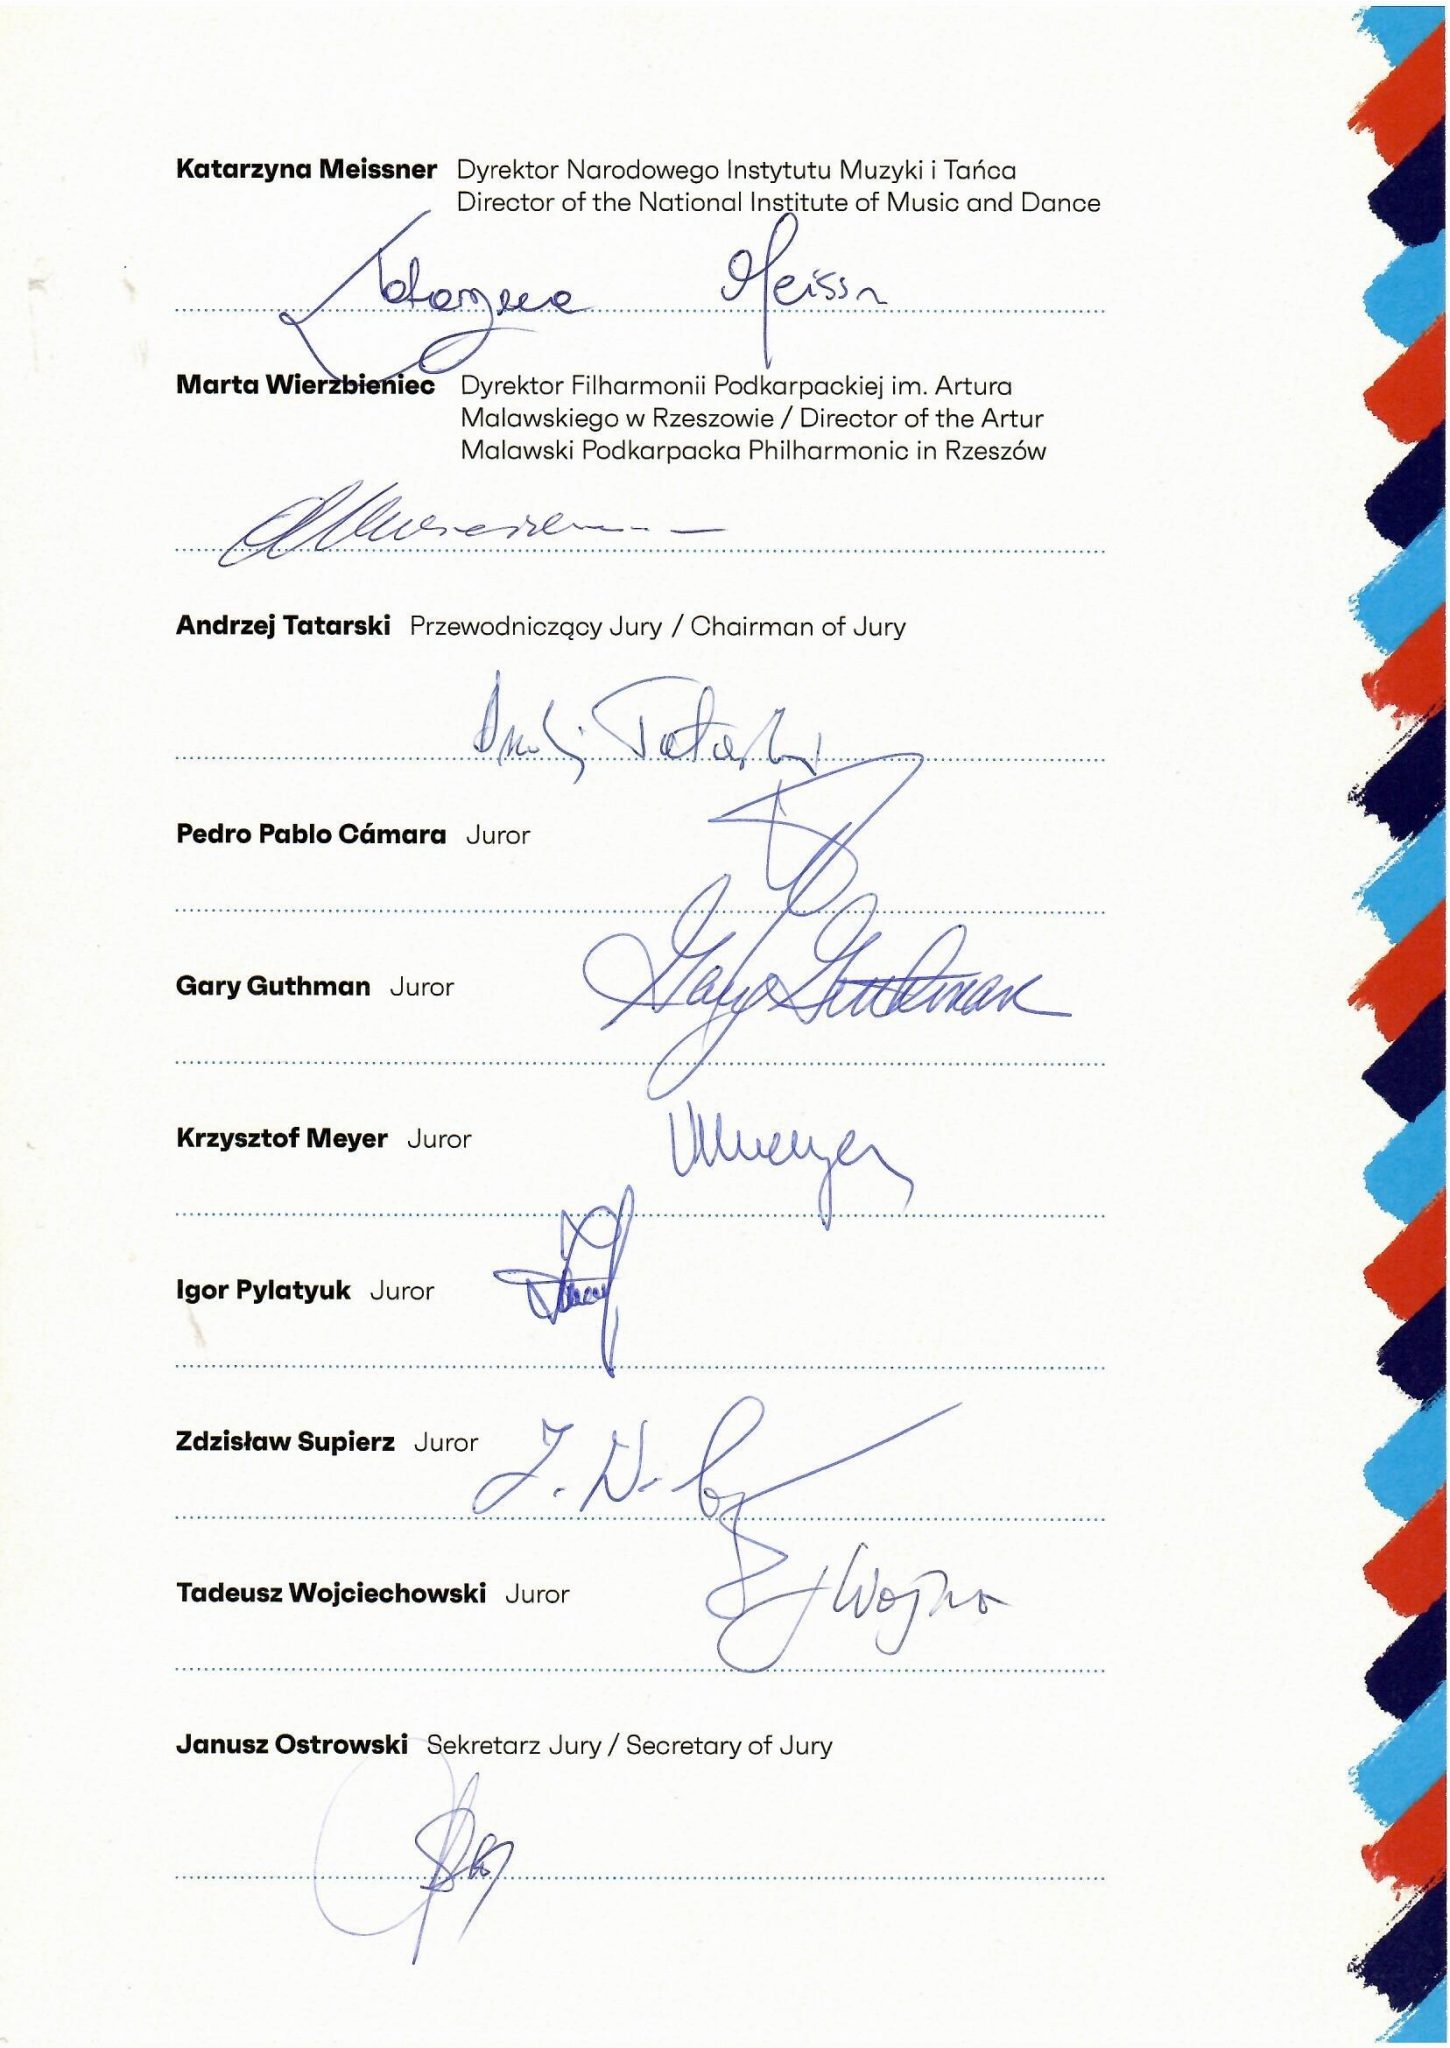 Katarzyna Meissner Dyrektor Narodowego Instytutu Muzyki i Tańca
Director of the National Institute of Music and Dance
Katarzyna Meissn
Marta Wierzbieniec Dyrektor Filharmonii Podkarpackiej im. Artura
Malawskiego w Rzeszowie / Director of the Artur
Malawski Podkarpacka Philharmonic in Rzeszów
Andrzej Tatarski Przewodniczący Jury / Chairman of Jury
Andrzej Tatarski
Pedro Pablo Cámara Juror
Gary Guthman Juror
Gary Guthman
Krzysztof Meyer Juror
Meyer
Igor Pylatyuk Juror
Zdzisław Supierz Juror
Tadeusz Wojciechowski Juror
Janusz Ostrowski Sekretarz Jury / Secretary of Jury